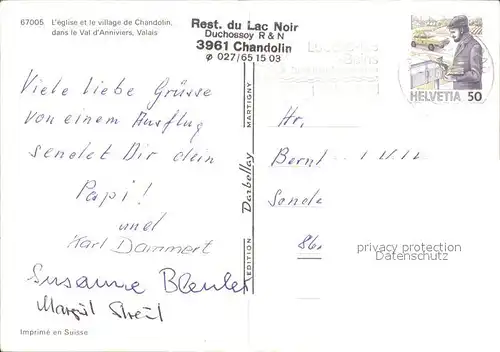 67005 L'église et le village de Chandolin,
dans le Val d'Anniviers, Valais
Rest. du Lac Noir
Duchossoy R & N
3961 Chandolin
∅ 027/65 15 03
HELVETIA 50
Viele liebe Grüsse
von einem Ausflug
sendet Dir dein
Papi!
und
Karl Dammert
Susanne
Margrit
Imprimé en Suisse
EDITION Darbellay MARTIGNY
Hr.
Bernt
86
privacy protection
Datenschutz